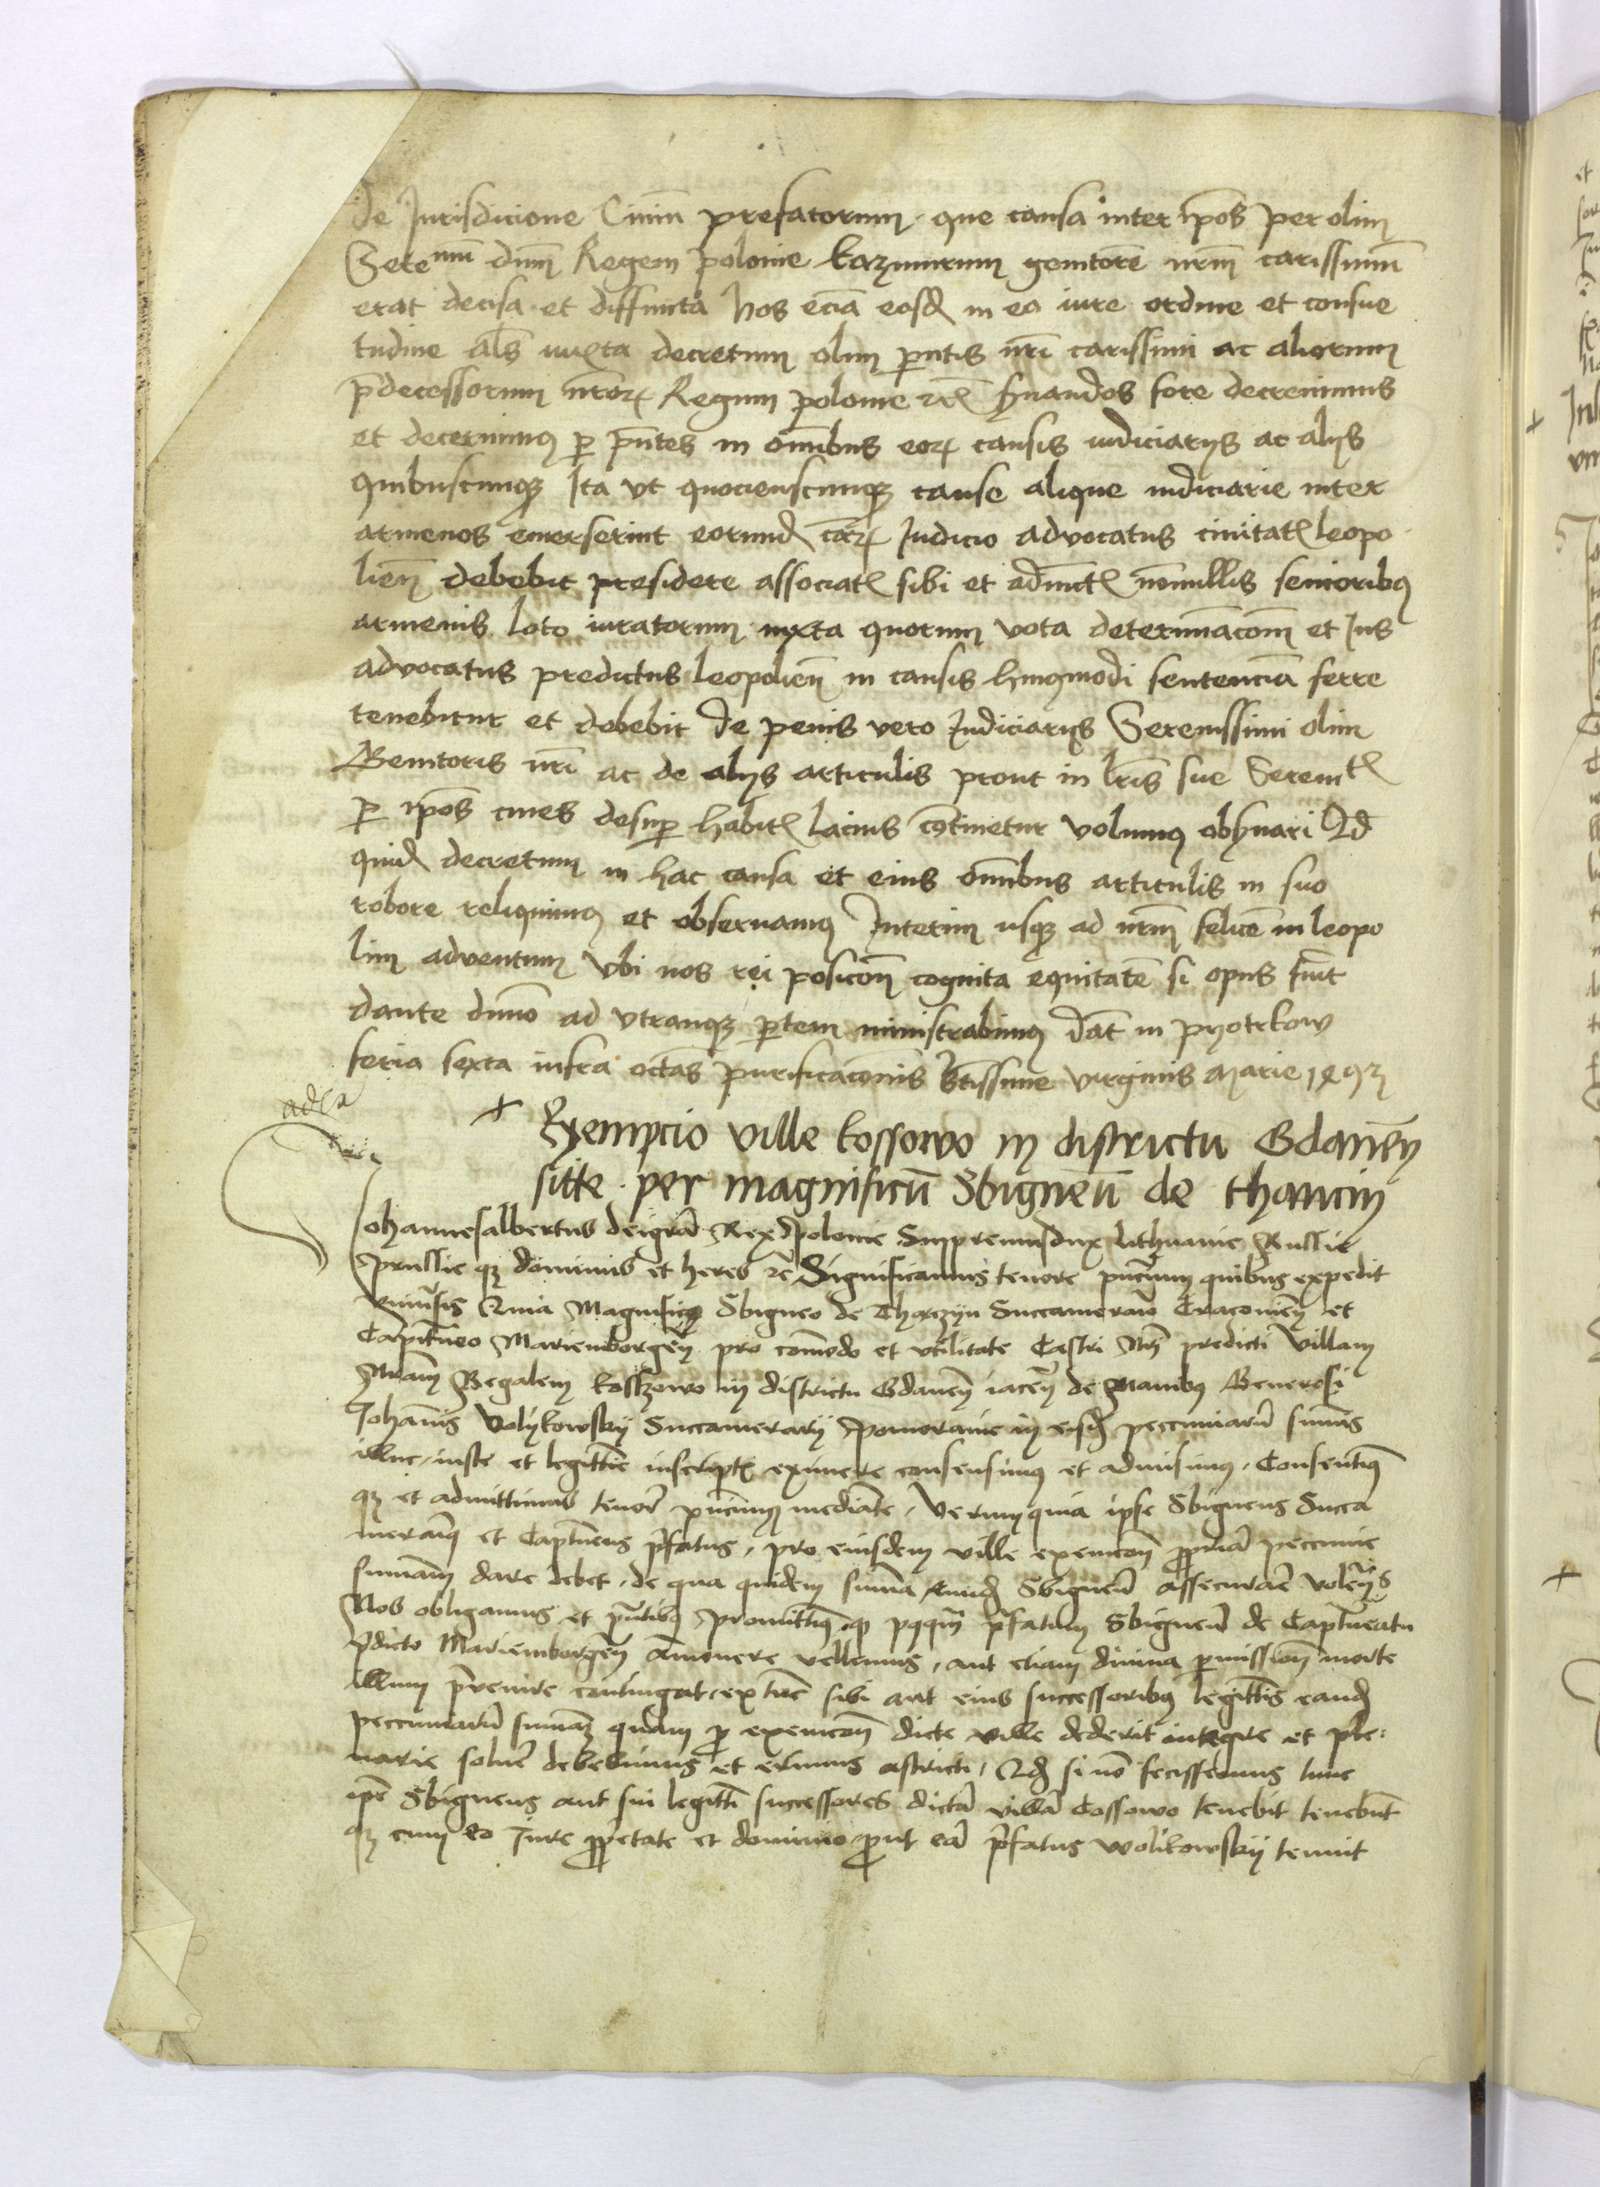 de Jurisdicione Civiu prefatorum. que causa inter ipos per olim
Serenm dnm Regem polonie kazimirum genitore nrm carissimu
erat decisa et diffinita hos ecia eosd in eo iure ordine et consue
tudine als iuxta decretum olim pntis nri carissimi ac aliorum
pdecessorum nror Regum polonie fore decrevimus
et decernimus p pntes in omibus eor causis iudiciarijs ac alijs
quibuscunqz Ita vt quocienscunqz cause alique iudiciarie inter
armenos emerserint eorund car Iudicio advocatus civitat leopo
lien debebit presidere associat sibi et adiunct nonnullis senioribus
armenis loco iuratorum iuxta quorum vota determinacom et Jus
advocatus predictus leopolien in causis hmoi sentencia ferre
tenebitur et debebit de penis vero Iudiciarijs Serenissimi olim
Genitoris nri ac de alijs articulis prout in lris sue Serenit
p ipos cives desup habit lacius cotinetur volumus obsuari Qd
quid decretum in hac causa et eius omibus articulis in suo
robore relinquimus et observamus Interim usqz ad nrm felice in leopo
lim adventum Vbi nos rei posicom cognita equitate si opus fuit
dante dnio ad vtranqz ptem ministrabimus dat in pyotrkow
feria sexta infra octas purificacionis btissime virginis Marie 1493
+ Exempcio ville kossowo in districtu Gdanen
sitte per magnificu Sbigneu de thancin
Johannesalbertus deigra Rex Polonie Supremusdux lithuanie Russie
Prussie qz dominus et heres rc Significamus tenore pncium quibus expedit
vniusis Quia Magnifico Sbigneo de Thanczyn Succamerario Cracovien et
Capitaneo Marienborgen pro comodo et vtilitate Castri Nri predicti Villam
Nram Regalem kosszowo in districtu Gdanen iacen de manibus Generosi
Johanis Volykowskij Succamerarij Pomoranie in eisd peccuniaru sumis
illuc iuste et legittime inscript eximere consensimus et admisimus. Consentims
qz et admittimus tenore pncium mediante. Verum quia ipse Sbigneus Succa
merarius et Captaneus pfatus, pro eiusdem ville exemcom ppria peccunie
sumam dare debet. de qua quidem suma eund Sbigneu assecurare volentes
Nos obligamus et pntibus Promittims qz pqqm pfatum Sbigneu de Captaneatu
pdicto Mariemborgen amovere vellemus, aut etiam divina pmissiom morte
illum pvenire contingat, extunc sibi aut eius successoribus legittis eand
peccuniaru sumam quam p exemcom dicte ville dederit integre et ple-
narie solvere debebimus et erimus astricti, Qd si no fecissemus tunc
ipe Sbigneus aut sui legitti successores dicta villa Cossowo tenebit tenebunt
qz cum eo Jure ppetate et dominio prout ea pfatus wolikowskij tenuit